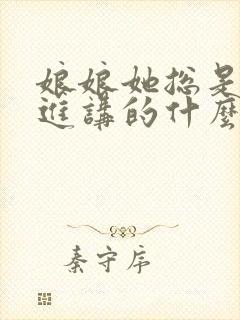 娘娘她總是
進講的什麼
秦守序